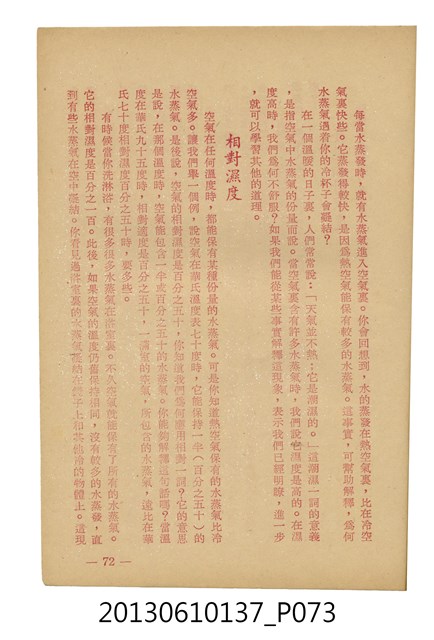 每當水蒸發時，就有水蒸氣進入空氣裏。你會回想到，水的蒸發在熱空氣裏，比在冷空
氣裏快些。它蒸發得較快，是因爲熱空氣能保有較多的水蒸氣。這事實，可幫助解釋，爲何
水蒸氣遇着你的冷杯子會凝結？
在一個溫暖的日子裏，人們常常說：「天氣並不熱；它是潮濕的。」這潮濕一詞的意義
，是指空氣中水蒸氣的份量而說。當空氣裏含有許多水蒸氣時，我們說它濕度是高的。在濕
度高時，我們爲何不舒服？如果我們能從某些事實解釋這現象，表示我們已經明瞭，進一步
，就可以學習其他的道理。
相對濕度
空氣在任何溫度時，都能保有某種份量的水蒸氣。可是你知道熱空氣能保有的水蒸氣比冷
空氣多。讓我們舉一個例，說空氣在華氏溫度表七十度時，它能保持一半（百分之五十）的
水蒸氣。是能說，空氣的相對濕度是百分之五十。你知道我們爲何應用相對一詞？它的意思
是說，在那個溫度時，空氣能包含一半或百分之五十的水蒸氣。你能夠解釋這句話嗎？當溫
度在華氏九十五度時，相對濕度是百分之五十，一滿室的空氣，所包含的水蒸氣，遠比在華
氏七十度相對濕度百分之五十時，要多些。
有時候當你洗淋浴，有很多很多水蒸氣在浴室裏。不久空氣就能保有了所有的水蒸氣。
它的相對濕度是百分之一百。此後，如果空氣的溫度仍舊保持相同，沒有較多的水蒸發，直
到有些水蒸氣在空中凝結。你看見過浴室裏的水蒸氣凝結在鏡子上和其他冷的物體上。這現
— 72 —
20130610137_P073